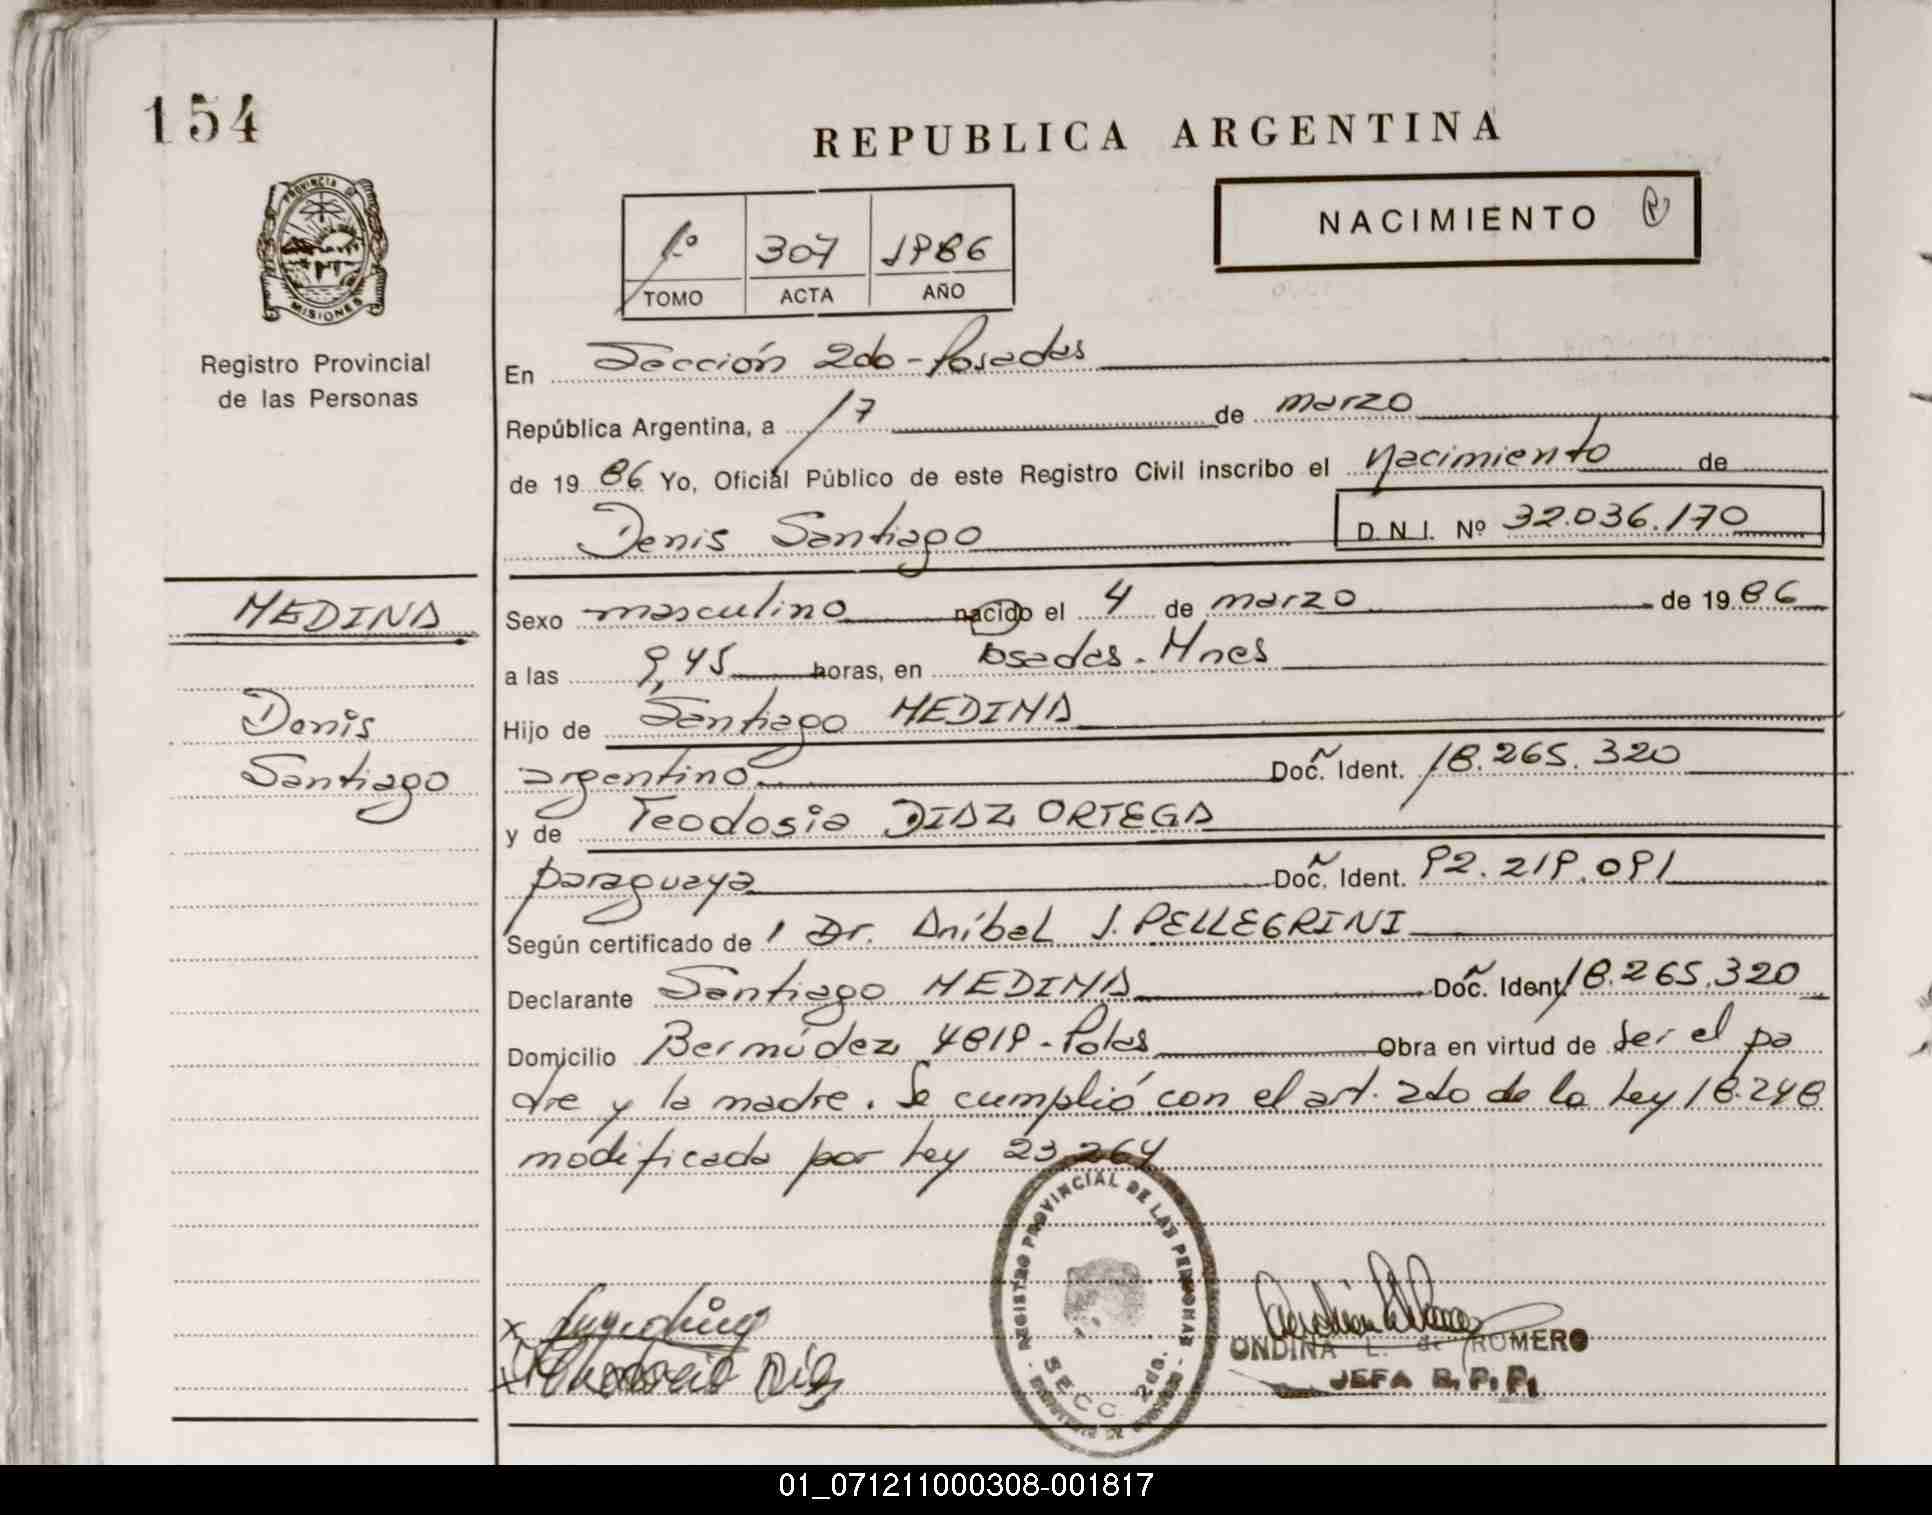 154
REPUBLICA ARGENTINA
PROVINCIA DE
MISIONES
Registro Provincial
de las Personas
1º 307 1986
TOMO ACTA AÑO
NACIMIENTO
En Sección 2do - Posadas
República Argentina, a 17 de marzo
de 19 86 Yo, Oficial Público de este Registro Civil inscribo el nacimiento de
Denis Santiago D.N.I. Nº 32.036.170
MEDINA
Denis
Santiago
Sexo masculino nacido el 4 de marzo de 19 86
a las 9,45 horas, en Posadas - Mnes
Hijo de Santiago MEDINA
argentino Doc. Ident. 18.265.320
y de Teodosia DIAZ ORTEGA
paraguaya Doc. Ident. 92.219.091
Según certificado de Dr. Aníbal J. PELLEGRINI
Declarante Santiago MEDINA Doc. Ident. 18.265.320
Domicilio Bermúdez 4819 - Pdas Obra en virtud de ser el pa
dre y la madre. Se cumplió con el art. 2do de la Ley 18.248
modificada por Ley 23.264
REGISTRO PROVINCIAL DE LAS PERSONAS
SECC. 2da.
x
x Diaz
ONDINA L. de ROMERO
JEFA R.P.P.
01_071211000308-001817